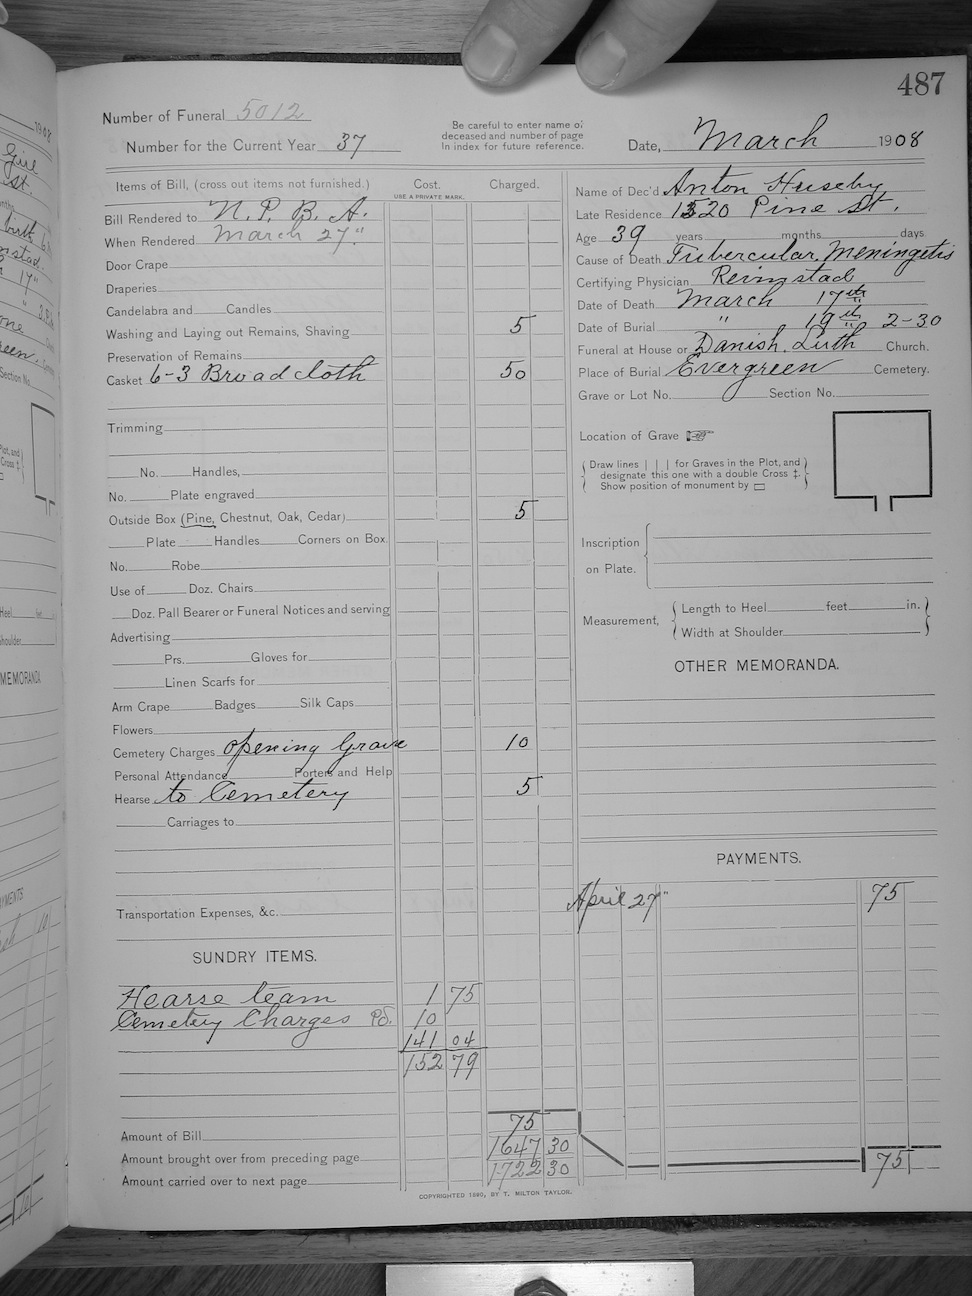 487
Number of Funeral 5012
Be careful to enter name of
deceased and number of page
In index for future reference.
Number for the Current Year 37
Date, March 1908
Items of Bill, (cross out items not furnished.) Cost. Charged.
USE A PRIVATE MARK.
Bill Rendered to N. P. B. A.
When Rendered March 27"
Door Crape
Draperies
Candelabra and Candles
Washing and Laying out Remains, Shaving 5
Preservation of Remains
Casket 6-3 Broadcloth 50
Trimming
No. Handles,
No. Plate engraved
Outside Box (Pine, Chestnut, Oak, Cedar) 5
Plate Handles Corners on Box.
No. Robe
Use of Doz. Chairs
Doz. Pall Bearer or Funeral Notices and serving
Advertising
Prs. Gloves for
Linen Scarfs for
Arm Crape Badges Silk Caps
Flowers
Cemetery Charges opening Grave 10
Personal Attendance Porters and Help
Hearse to Cemetery 5
Carriages to
Transportation Expenses, &c.
SUNDRY ITEMS.
Hearse team 1 75
Cemetery Charges Pd. 10
141 04
152 79
75
Amount of Bill
1647 30
Amount brought over from preceding page
1722 30
Amount carried over to next page
COPYRIGHTED 1890, BY T. MILTON TAYLOR.
Name of Dec'd Anton Huseby
Late Residence 1520 Pine St.
Age 39 years months days
Cause of Death Tubercular Meningetis
Certifying Physician Reimstad
Date of Death March 17th
Date of Burial " 19th 2-30
Funeral at House or Danish Luth Church.
Place of Burial Evergreen Cemetery.
Grave or Lot No. Section No.
Location of Grave
Draw lines | | | for Graves in the Plot, and
designate this one with a double Cross ‡.
Show position of monument by
Inscription
on Plate.
Measurement, Length to Heel feet in.
Width at Shoulder
OTHER MEMORANDA.
PAYMENTS.
April 27" 75
75